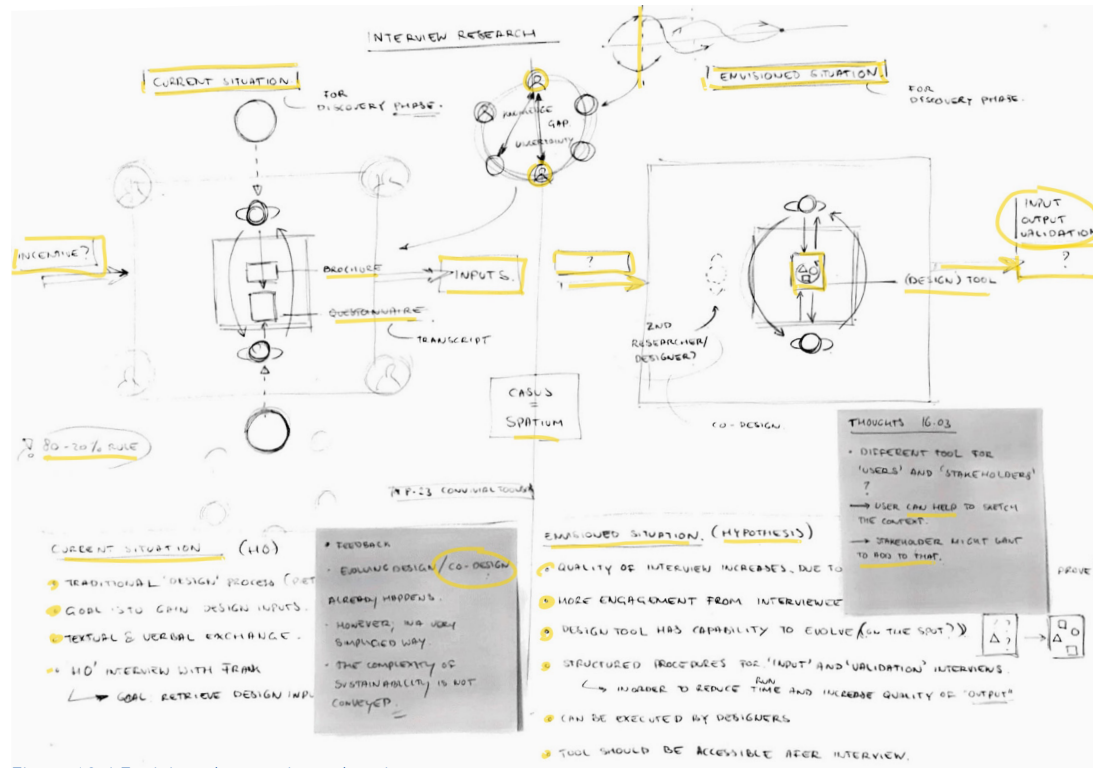 INTERVIEW RESEARCH
CURRENT SITUATION
FOR
DISCOVERY PHASE.
ENVISIONED SITUATION.
FOR
DISCOVERY PHASE.
KNOWLEDGE
GAP.
UNCERTAINTY
INCENTIVE?
BROCHURE
QUESTIONNAIRE
TRANSCRIPT
INPUTS.
?
2ND
RESEARCHER/
DESIGNER?
CO-DESIGN.
(DESIGN) TOOL
INPUT
OUTPUT
VALIDATION
?
CASUS
=
SPATIUM
80-20% RULE
P-23 CONVIVIAL
THOUGHTS 16.03
• DIFFERENT TOOL FOR
'USERS' AND 'STAKEHOLDERS'
?
→ USER CAN HELP TO SKETCH
THE CONTEXT.
→ STAKEHOLDER MIGHT WANT
TO ADD TO THAT.
CURRENT SITUATION (H0)
• TRADITIONAL 'DESIGN' PROCESS
• GOAL IS TO GAIN DESIGN INPUTS.
• TEXTUAL & VERBAL EXCHANGE.
• H0' INTERVIEW WITH FRANK
GOAL: RETRIEVE DESIGN
• FEEDBACK
• EVOLVING DESIGN / CO-DESIGN
ALREADY HAPPENS.
• HOWEVER; IN A VERY
SIMPLIFIED WAY.
• THE COMPLEXITY OF
SUSTAINABILITY IS NOT
CONVEYED.
ENVISIONED SITUATION. (HYPOTHESIS)
• QUALITY OF INTERVIEW INCREASES. DUE TO
PROVE
• MORE ENGAGEMENT FROM INTERVIEWEE
• DESIGN TOOL HAS CAPABILITY TO EVOLVE (ON THE SPOT?)
• STRUCTURED PROCEDURES FOR 'INPUT' AND 'VALIDATION' INTERVIEWS.
IN ORDER TO REDUCE RUN TIME AND INCREASE QUALITY OF "OUTPUT"
• CAN BE EXECUTED BY DESIGNERS
• TOOL SHOULD BE ACCESSIBLE AFER INTERVIEW.